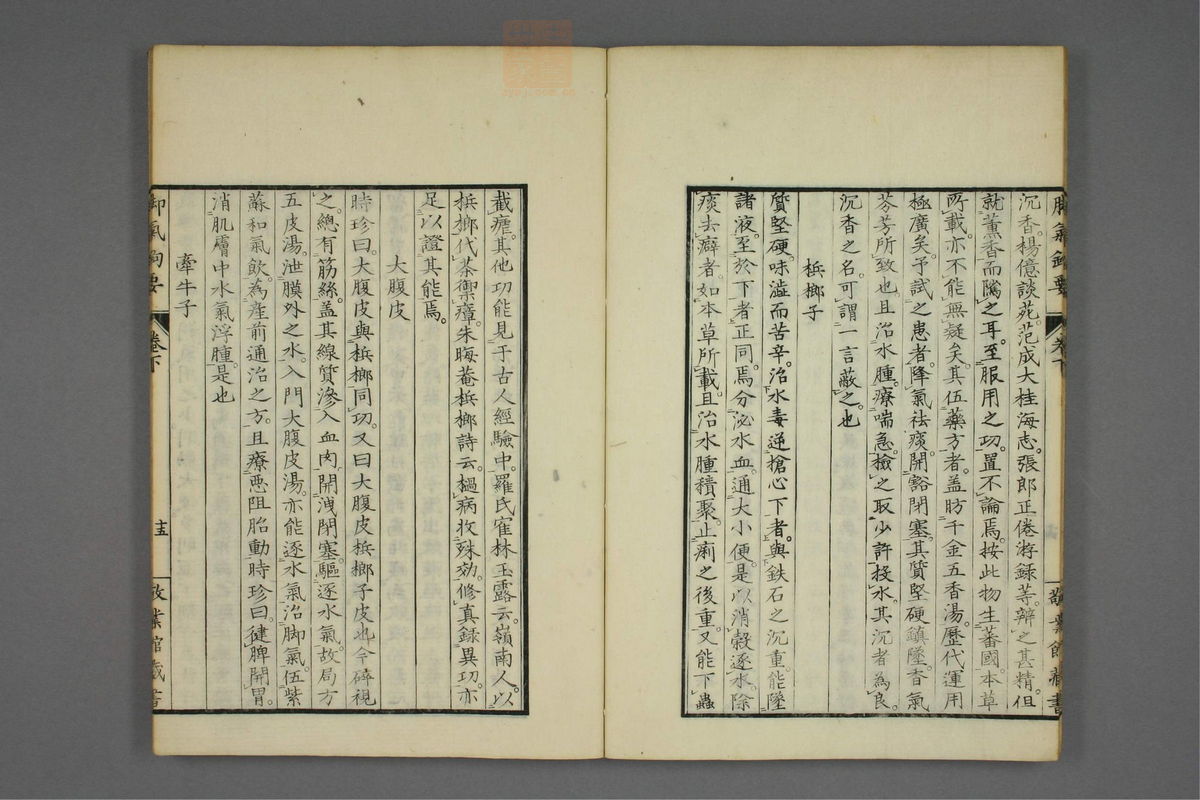 沉香。楊億談苑。范成大桂海志。張師正倦游錄等。辨之甚精。但
就薰香而隲之耳。至服用之功。置不論焉。按此物生蕃國。本草
所載亦不能無疑矣。其伍藥方者。盖昉千金五香湯。歷代運用
極廣矣。予試之患者。降氣祛痰。開豁閉塞。其質堅硬鎮墜。香氣
芬芳所致也。且治水腫。療喘急。撿之取少許投水。其沉者為良。
沉香之名。可謂一言蔽之也
梹榔子
質堅硬。味澁而苦辛。治水毒逆搶心下者。與鉄石之沉重。能墜
諸液。至於下者正同焉。分泌水血。通大小便。是以消穀逐水。除
痰去癖者。如本草所載。且治水腫積聚。止痢之後重。又能下蟲
截瘧。其他功能見于古人經驗中。羅氏崔林玉露云。嶺南人。以
梹榔代茶禦瘴。朱晦菴梹榔詩云。𣖯病收殊効。修真錄異功。亦
足以證其能焉。
大腹皮
時珍曰。大腹皮與梹榔同功。又曰大腹皮梹榔子皮也。今碎視
之。總有筋絲。盖其線質滲入血肉。開洩閉塞。驅逐水氣。故局方
五皮湯。泄膜外之水。入門大腹皮湯。亦能逐水氣。治脚氣。伍紫
蘇和氣飲。為産前通治之方。且療惡阻胎動。時珍曰。健脾開胃。
消肌膚中水氣浮腫。是也
牽牛子
卷下
十五